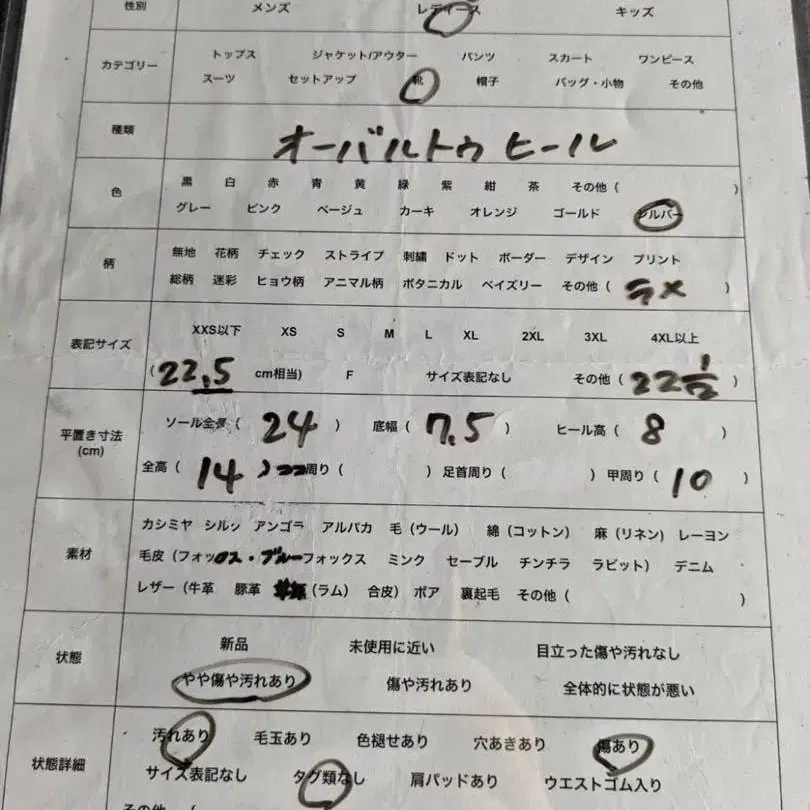 性別 メンズ レディース キッズ
カテゴリー トップス ジャケット/アウター パンツ スカート ワンピース
スーツ セットアップ 靴 帽子 バッグ・小物 その他
種類 オーバルトゥ ヒール
色 黒 白 赤 青 黄 緑 紫 紺 茶 その他 ( )
グレー ピンク ベージュ カーキ オレンジ ゴールド シルバー
柄 無地 花柄 チェック ストライプ 刺繍 ドット ボーダー デザイン プリント
総柄 迷彩 ヒョウ柄 アニマル柄 ボタニカル ペイズリー その他 ( ラメ )
表記サイズ XXS以下 XS S M L XL 2XL 3XL 4XL以上
( 22.5 cm相当) F サイズ表記なし その他 ( 22 1/2 )
平置き寸法 (cm) ソール全長 ( 24 ) 底幅 ( 7.5 ) ヒール高 ( 8 )
全高 ( 14 ) 周り ( ) 足首周り ( ) 甲周り ( 10 )
素材 カシミヤ シルク アンゴラ アルパカ 毛 (ウール) 綿 (コットン) 麻 (リネン) レーヨン
毛皮 (フォックス・ブルーフォックス ミンク セーブル チンチラ ラビット) デニム
レザー (牛革 豚革 (ラム) 合皮) ボア 裏起毛 その他 ( )
状態 新品 未使用に近い 目立った傷や汚れなし
やや傷や汚れあり 傷や汚れあり 全体的に状態が悪い
状態詳細 汚れあり 毛玉あり 色褪せあり 穴あきあり 傷あり
サイズ表記なし タグ類なし 肩パッドあり ウエストゴム入り
その他 (